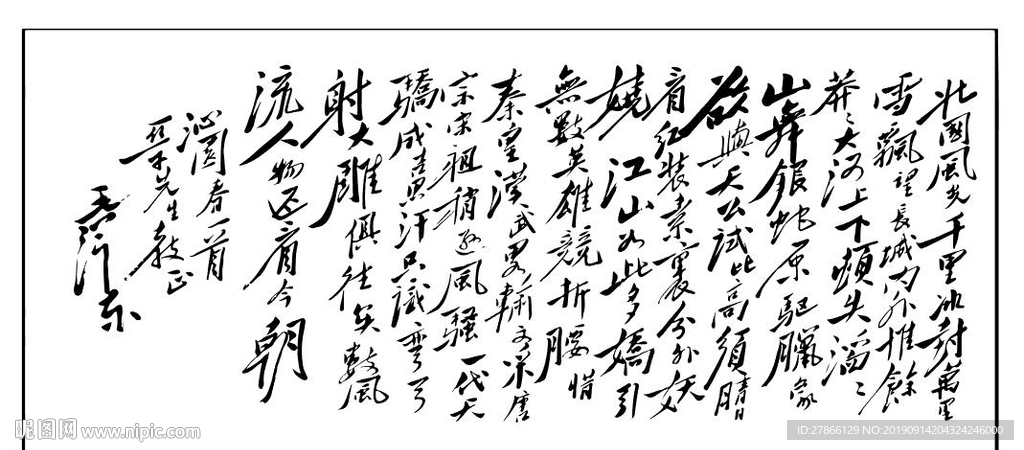 北國風光千里冰封萬里
雪飄望長城內外惟餘
莽〻大河上下頓失滔〻
山舞銀蛇原驅臘象
欲與天公試比高須晴日
看紅裝素裹分外妖
嬈江山如此多嬌引
無數英雄競折腰惜
秦皇漢武略輸文采唐
宗宋祖稍遜風騷一代天
驕成吉思汗只識彎弓
射大雕俱往矣數風
流人物还看今朝
沁園春一首
亞子先生教正
毛澤东
昵图网 www.nipic.com
ID:27866129 NO:20190914204324246000